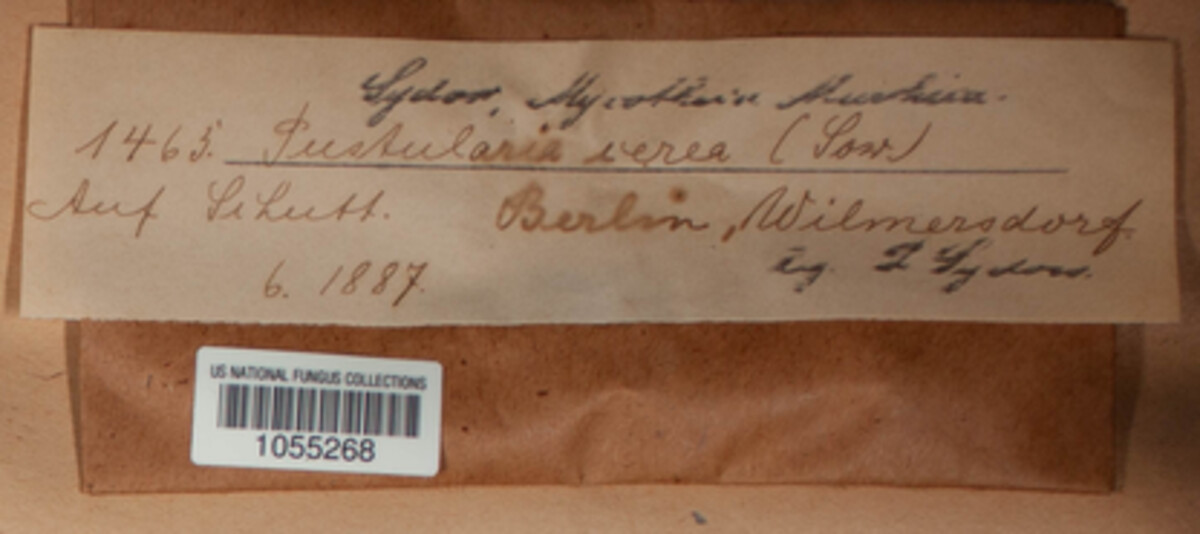 Sydow, Mycotheca Marchica.
1465. Pustularia cerea (Sow.)
Auf Schutt. Berlin, Wilmersdorf.
6. 1887. leg. P. Sydow.
US NATIONAL FUNGUS COLLECTIONS
1055268